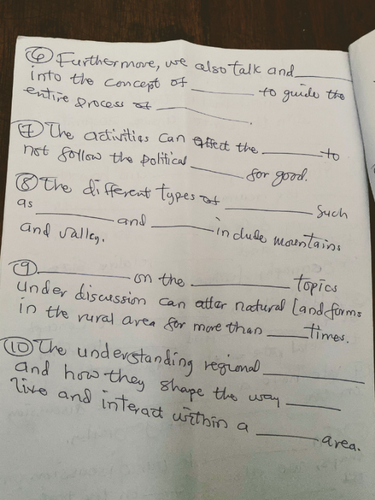 ⑥ Furthermore, we also talk and ______
into the concept of ______ to guide the
entire process of ______.
⑦ The activities can affect the ______ to
not follow the political ______ for good.
⑧ The different types of ______ such
as ______ and ______ include mountains
and valley.
⑨ ______ on the ______ topics
under discussion can alter natural landforms
in the rural area for more than ______ times.
⑩ The understanding regional ______
and how they shape the way ______
live and interact within a ______ area.